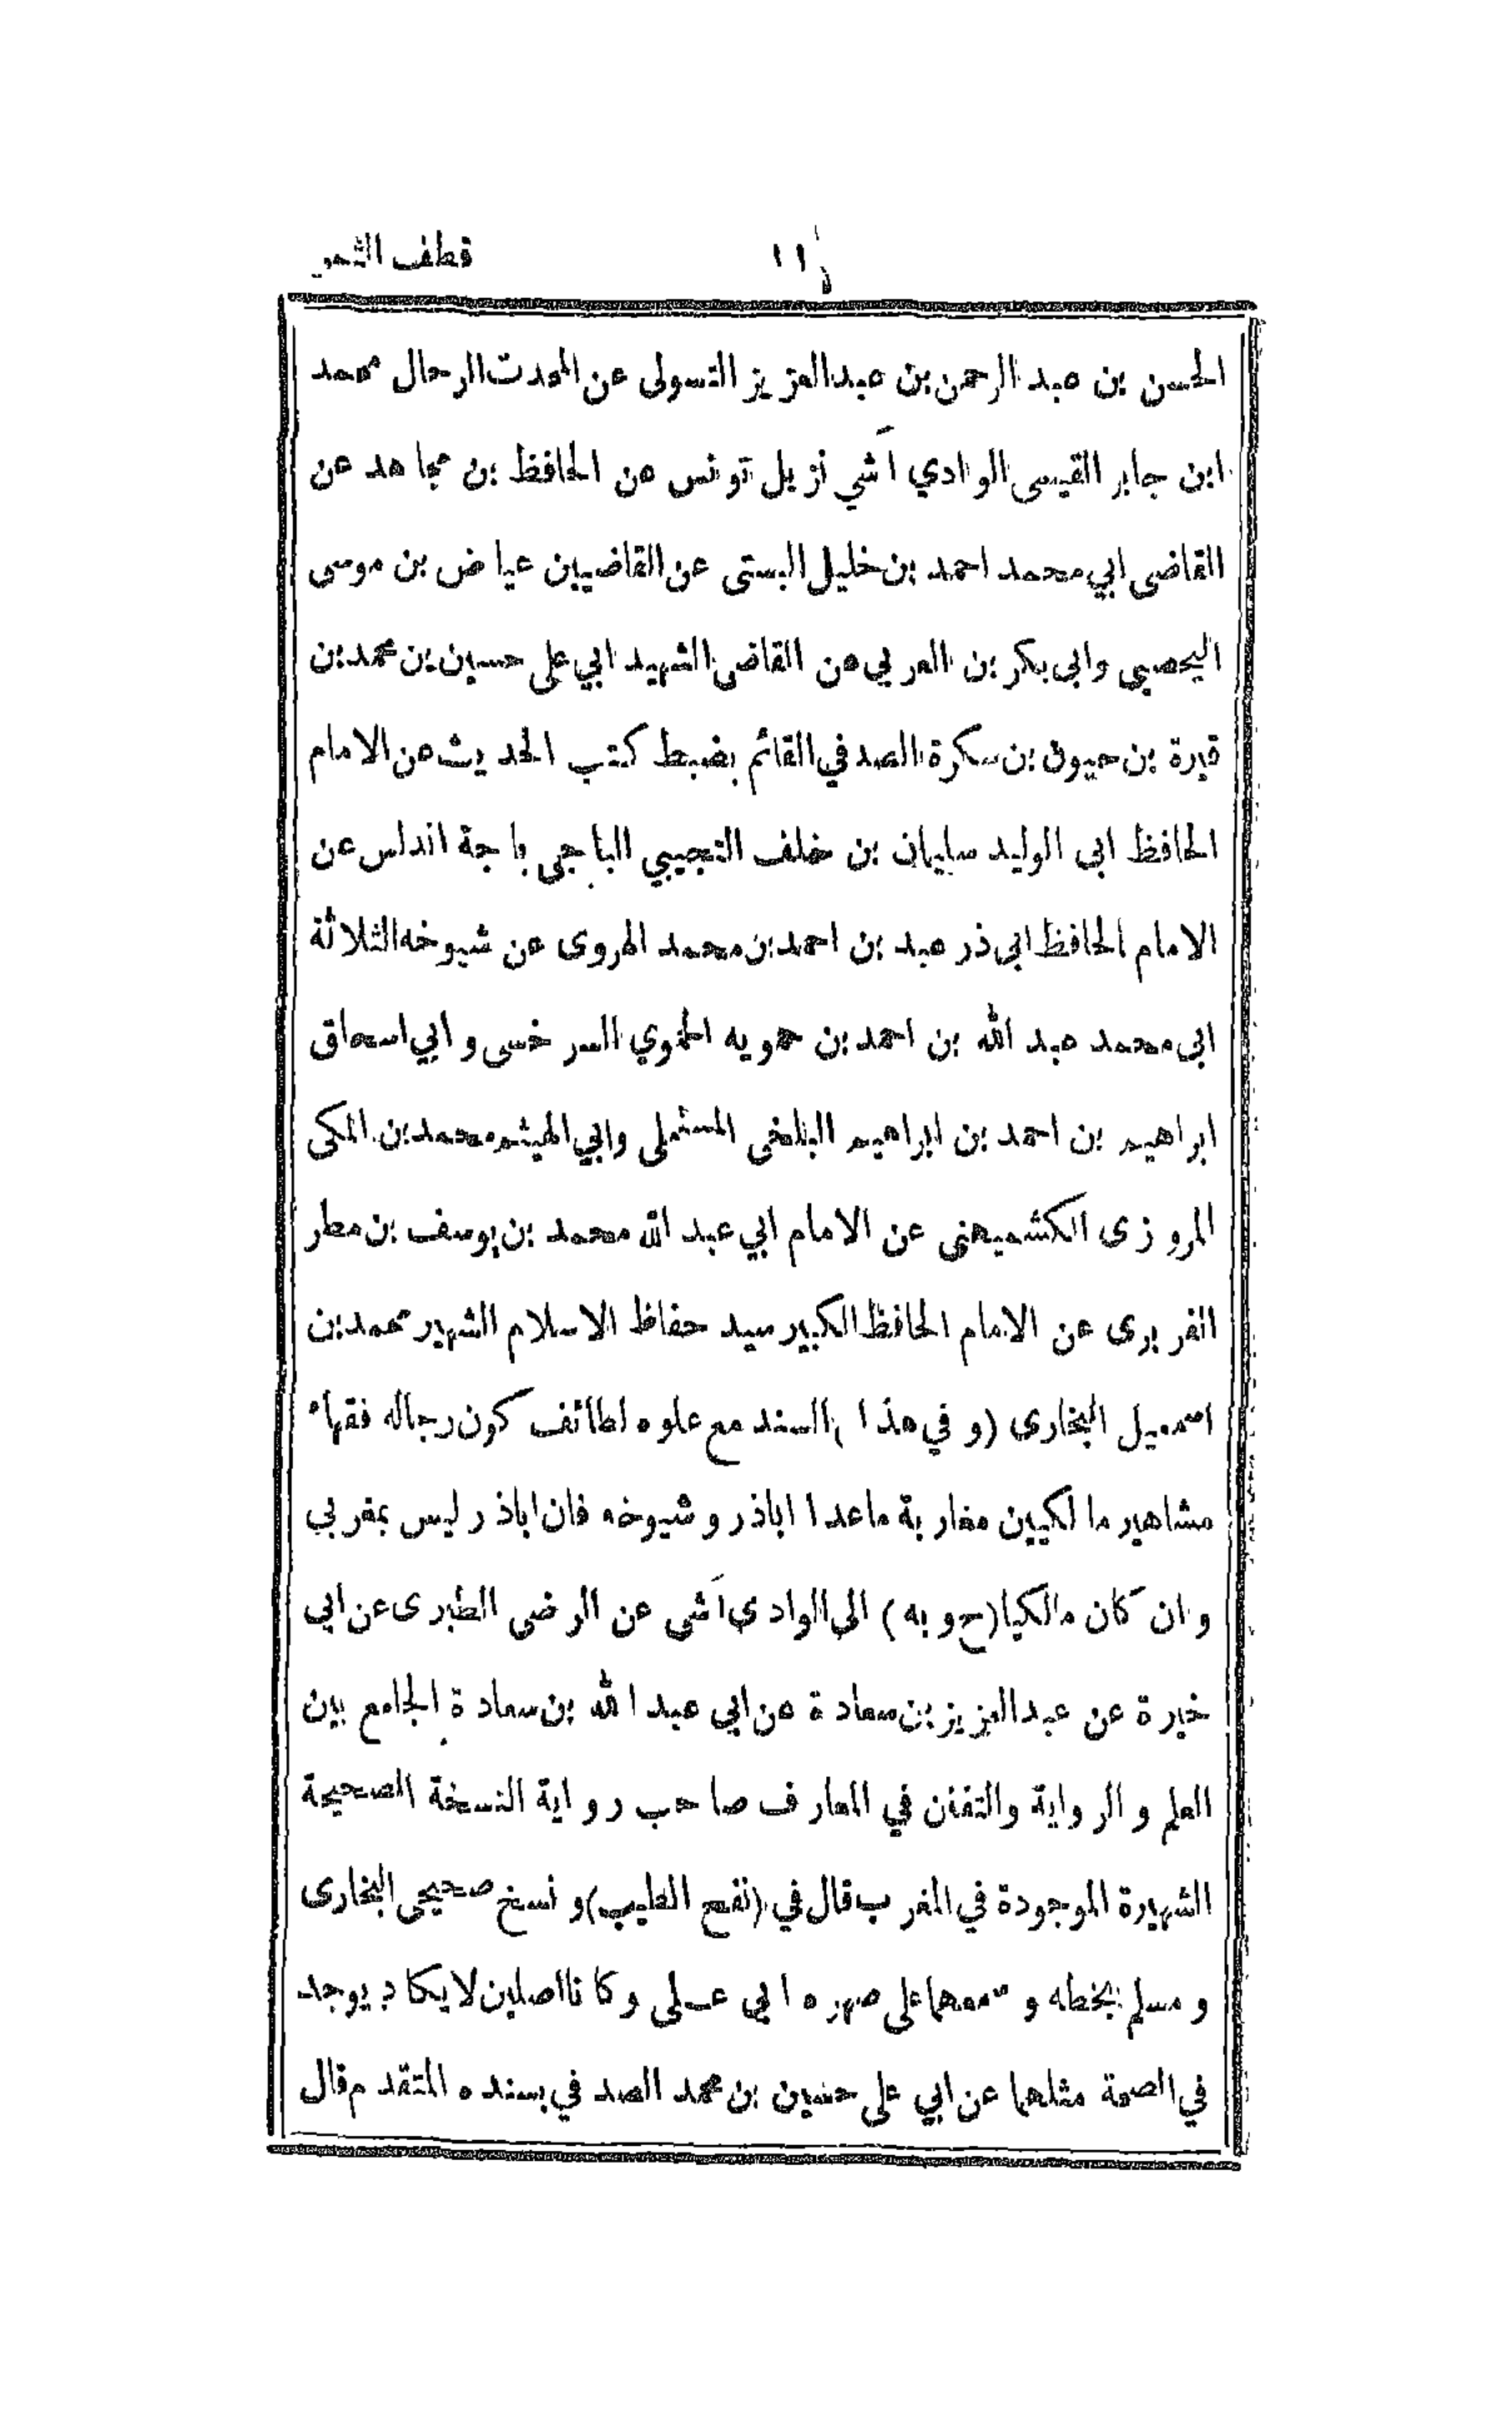 ١١ قطف الثمر
الحسن بن عبد الرحمن بن عبدالعزيز التسولى عن المحدث الرحال محمد
ابن جابر القيسى الوادي آشي نزيل تونس عن الحافظ بن مجاهد عن
القاضى ابي محمد احمد بن خليل البستى عن القاضيين عياض بن موسى
اليحصبي وابى بكر بن العربي عن القاضى الشهيد ابي على حسين بن محمد بن
فيرة بن حيون بن سكرة الصدفي القائم بضبط كتب الحديث عن الامام
الحافظ ابى الوليد سليمان بن خلف التجيبي الباجى باجة اندلس عن
الامام الحافظ ابى ذر عبد بن احمد بن محمد الهروى عن شيوخه الثلاثة
ابى محمد عبد الله بن احمد بن حمويه الحموي السرخسى و ابي اسحاق
ابراهيم بن احمد بن ابراهيم البلخى المستملى وابي الهيثم محمد بن المكى
المروزى الكشميهنى عن الامام ابي عبد الله محمد بن يوسف بن مطر
الفربرى عن الامام الحافظ الكبير سيد حفاظ الاسلام الشهير محمد بن
اسمعيل البخارى (و في هذا) السند مع علوه لطائف كون رجاله فقهاء
مشاهير مالكيين مغاربة ماعدا اباذر و شيوخه فان اباذر ليس بمغربي
وان كان مالكيا (ح و به) الى الوادى آشى عن الرضى الطبرى عن ابي
خيرة عن عبدالعزيز بن سعادة عن ابي عبد الله بن سعادة الجامع بين
العلم و الرواية والتفنن في المعارف صاحب رواية النسخة الصحيحة
الشهيرة الموجودة في المغرب قال في (نفح الطيب) و نسخ صحيحى البخارى
و مسلم بخطه و سمعهما على صهره ابي عـلى وكانا اصلين لا يكاد يوجد
في الصحة مثلهما عن ابي على حسين بن محمد الصدفي بسنده المتقدم قال